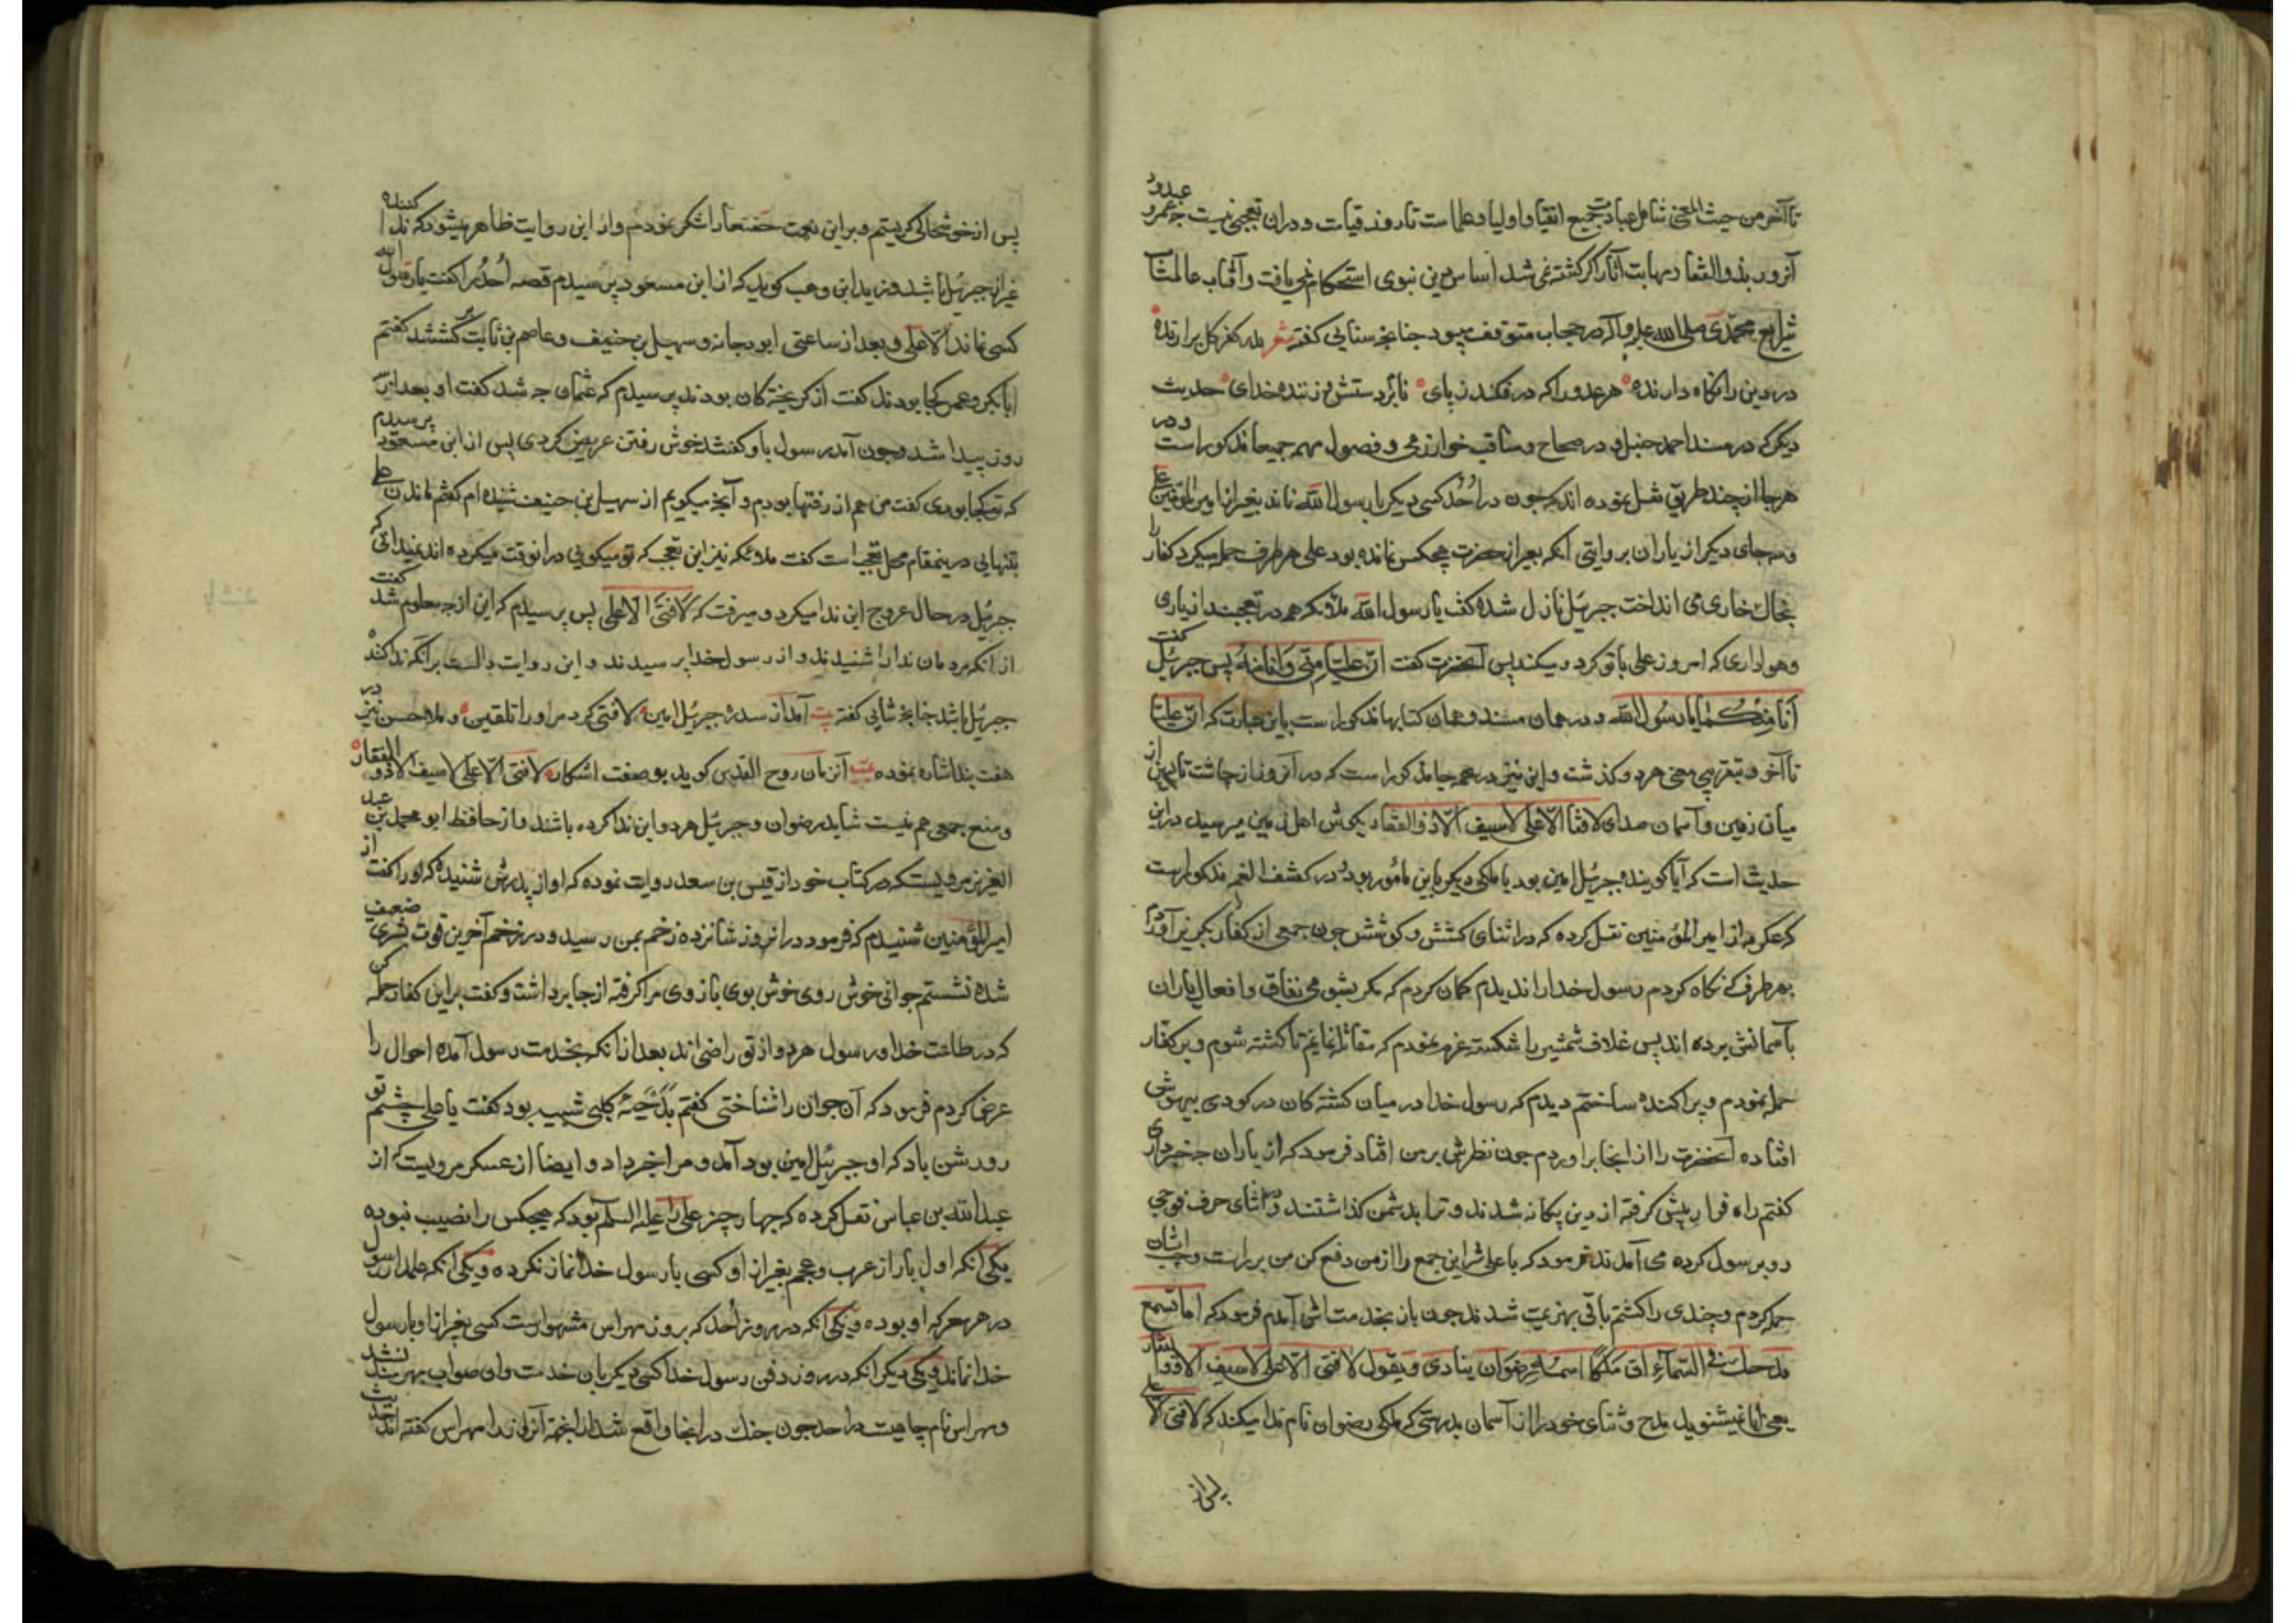 تا آخر من حیث المعنی شامل عبادت جمیع اتقیا و اولیا و علما است تا روز قیامت و در آن تعجبی نیست چه عمرو عبدود
آنروز بذوالفقار اگر کشته نمی شد اساس دین نبوی استحکام نمی یافت و آفتاب عالمتاب
شرایع محمدی صلی الله علیه وآله در حجاب متوقف میبود چنانچه سنایی کفته شعر
در دین را نکاه دارنده هر عدو را که در فکند ز پای نابرد ستش زننده خدای حدیث
دیکر که در مسند احمد حنبل و در صحاح و مناقب خوارزمی و در فصول مهمه جمیعا مذکور است
هر جا از چند طریق نقل نموده اند که چون در اُحُد کسی دیکر با رسول الله نماند بغیر از امیر المؤمنین علی
و سه جای دیکر از یاران بروایتی آنکه بغیر از حضرت هیچکس نمانده بود علی هر طرف حمله میکرد کفار را
بخاک خواری می انداخت جبرئیل نازل شده کفت یا رسول الله ملائکه هم در تعجبند از یاری
و هواداری که امروز علی با تو کرد و میکند پس آنحضرت کفت انّ علیّا منّی وانا منهُ پس جبرئیل کفت
انا منکما یا رسول الله و در همان مسند و همان کتابها مذکور است باین عبارت که انّ علیّا
تا آخر و بتقریبی معنی هر دو کذشت و این نیز در همه جا مذکور است که در آنروز از چاشت تا پسین از
میان زمین و آسمان صدای لا فتا الّا علی لا سیف الّا ذوالفقار بکوش اهل زمین میرسید در این
حدیث است که آیا کوینده جبرئیل امین بود یا ملکی دیکر باین مأمور بود و در کشف الغمه مذکور است
که عکرمه از امیر المؤمنین نقل کرده که در اثنای کشش و کوشش چون جمعی از کفار بکریز آمدند
بهر طرف که نکاه کردم رسول خدا را ندیدم کمان کردم که مکر بشومی نفاق و افعال یاران
بآسمانش برده اند پس غلاف شمشیر را شکسته عزم نمودم که مقاتله نمایم تا کشته شوم و بر کفار
حمله نمودم و پراکنده ساختم دیدم که رسول خدا در میان کشته کان در کودی بیهوش
افتاده آنحضرت را از انجا براوردم چون نظرش بر من افتاد فرمود که از یاران چه خبر داری
کفتم راه فرار پیش کرفته از دین بیکانه شدند و ترا بدشمن کذاشتند در اثنای حرف فوجی
رو برسول کرده می آمدند فرمود که یا علی شر این جمع را از من دفع کن من بر ایشان
حمله کردم و چندی را کشتم باقی بهزیمت شدند چون باز بخدمتش آمدم فرمود که اما تسمع
مدحک فی السّماء انّ ملکاً اسمه رضوان ینادی ویقول لا فتی الّا علی لا سیف الّا ذوالفقار
یعنی آیا نمیشنوی مدح و ثنای خود را از آسمان بدرستی که ملکی رضوان نام ندا میکند که لا فتی الّا علی
پس از
پس از خوشحالی کریستم و بر این نعمت حقتعالی را شکر نمودم و از این روایت ظاهر میشود که ندا کننده
غیر از جبرئیل باشد و زید ابن وهب کوید که از ابن مسعود پرسیدم قصه اُحُد را کفت با رسول الله
کسی نماند الّا علی و بعد از ساعتی ابو دجانه و سهیل بن حنیف و عاصم بن ثابت کفتم
ابا بکر و عمر کجا بودند کفت از کریخته کان بودند پرسیدم که عثمان چه شد کفت او بعد از سه
روز پیدا شد و چون آمد رسول باو کفت خوش رفتن عریض کردی پس از ابن مسعود پرسیدم
که تو کجا بودی کفت من هم از رفتها بودم و آنچه میکویم از سهیل بن حنیف شنیده ام کفتم ماندن علی
بتنهایی در ینمقام محل تعجب است کفت ملائکه نیز این تعجب که تو میکویی در انوقت میکرده اند نمیدانی که
جبرئیل در حال عروج این ندا میکرد و میرفت که لا فتی الّا علی پس پرسیدم که این از چه معلوم شد کفت
از آنکه مردمان ندا را شنیدند و از رسول خدا پرسیدند و این روایت دالست بر آنکه ندا کننده
جبرئیل باشد چنانچه ثنایی کفته بیت آمد از سدره جبرئیل امین لا فتی کرد مر اورا تلقین و ملا حسن نیز در
هفت بند اشاره نموده آنزمان روح القدس کوید بوصفت اشکار لا فتی الّا علی لا سیف الّا ذوالفقار
و منع جمعی هم نیست شاید رضوان و جبرئیل هر دو این ندا کرده باشند و از حافظ ابو محمد بن عبد
العزیز مرویست که در کتاب خود از قیس بن سعد روایت نموده که او از پدرش شنیده که او را کفت از
امیر المؤمنین شنیدم که فرمود در انروز شانزده زخم بمن رسید و در زخم آخرین قوت بشری ضعیف
شده نشستم جوانی خوش روی خوش بوی بازوی مرا کرفته از جا برداشت و کفت بر این کفار حمله کن
که در طاعت خدا و رسول هر دو از تو راضی اند بعد از آنکه بخدمت رسول آمده احوال را
عرض کردم فرمود که آن جوان را شناختی کفتم بدَحیَۀ کلبی شبیه بود کفت یا علی چشم تو
روشن باد که او جبرئیل امین بود آمد و مرا خبر داد و ایضا از عسکر مرویست که از
عبدالله بن عباس نقل کرده که چهار چیز علی را علیه السلم بود که هیچکس را نصیب نبوده
یکی آنکه اول بار از عرب و عجم بغیر از او کسی با رسول خدا نماز نکرده و یکی آنکه علمدار رسول
در هر معرکه او بوده و یکی آنکه در روز اُحد که بروز مهراس مشهور است کسی بغیر از او با رسول
خدا نماند و یکی دیکر آنکه در روز دفن رسول خدا کسی دیکر بان خدمت وان صواب بهره مند نشد
و مهراس نام چاهیست در احد چون جنک در انجا واقع شد از اینجهة آنروز را مهراس کفته اند